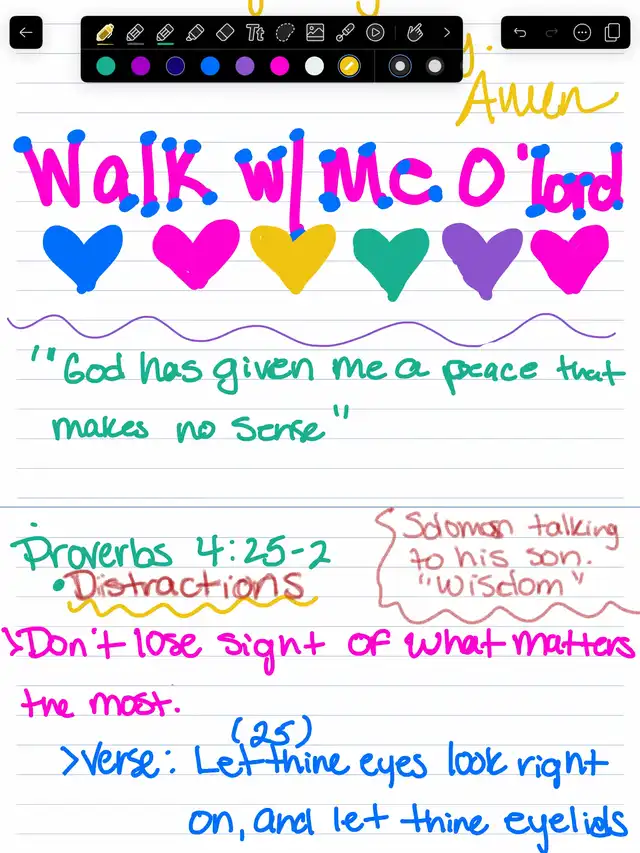 Tt
y.
Amen
Walk w/ Me O'lord
""God has given me a peace that
makes no sense"
Proverbs 4:25-2
• Distractions
Solomon talking
to his son.
"Wisdom"
>Don't lose sight of what matters
the most.
(25)
>Verse: Let thine eyes look right
on, and let thine eyelids